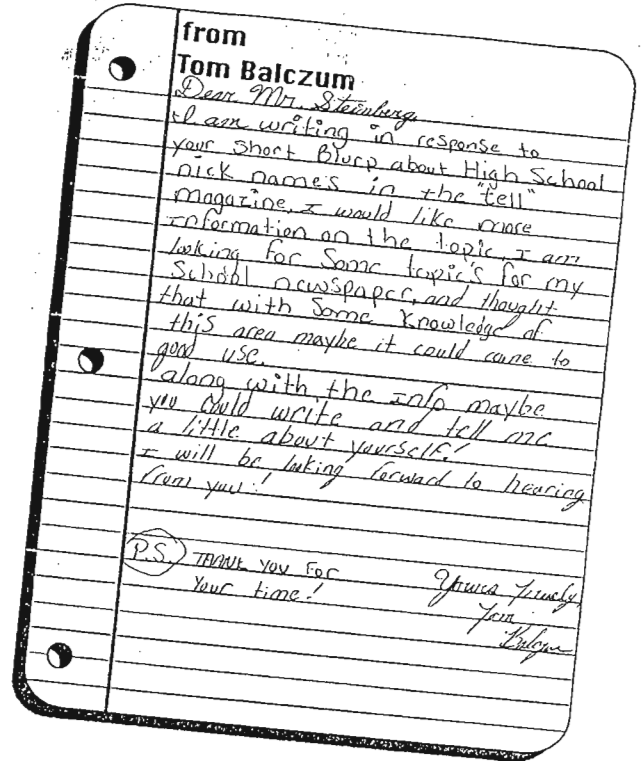 from
Tom Balczum
Dear Mr. Steinberg,
I am writing in response to
your short Blurp about High School
nick name's in the "tell"
magazine, I would like more
information on the topic, I am
looking for some topic's for my
School newspaper, and thought
that with some knowledge of
this area maybe it could come to
good use.
along with the info maybe
you could write and tell me
a little about yourself!
I will be looking forward to hearing
from you!
P.S. THANK YOU For
Your time!
Yours Truely,
Tom